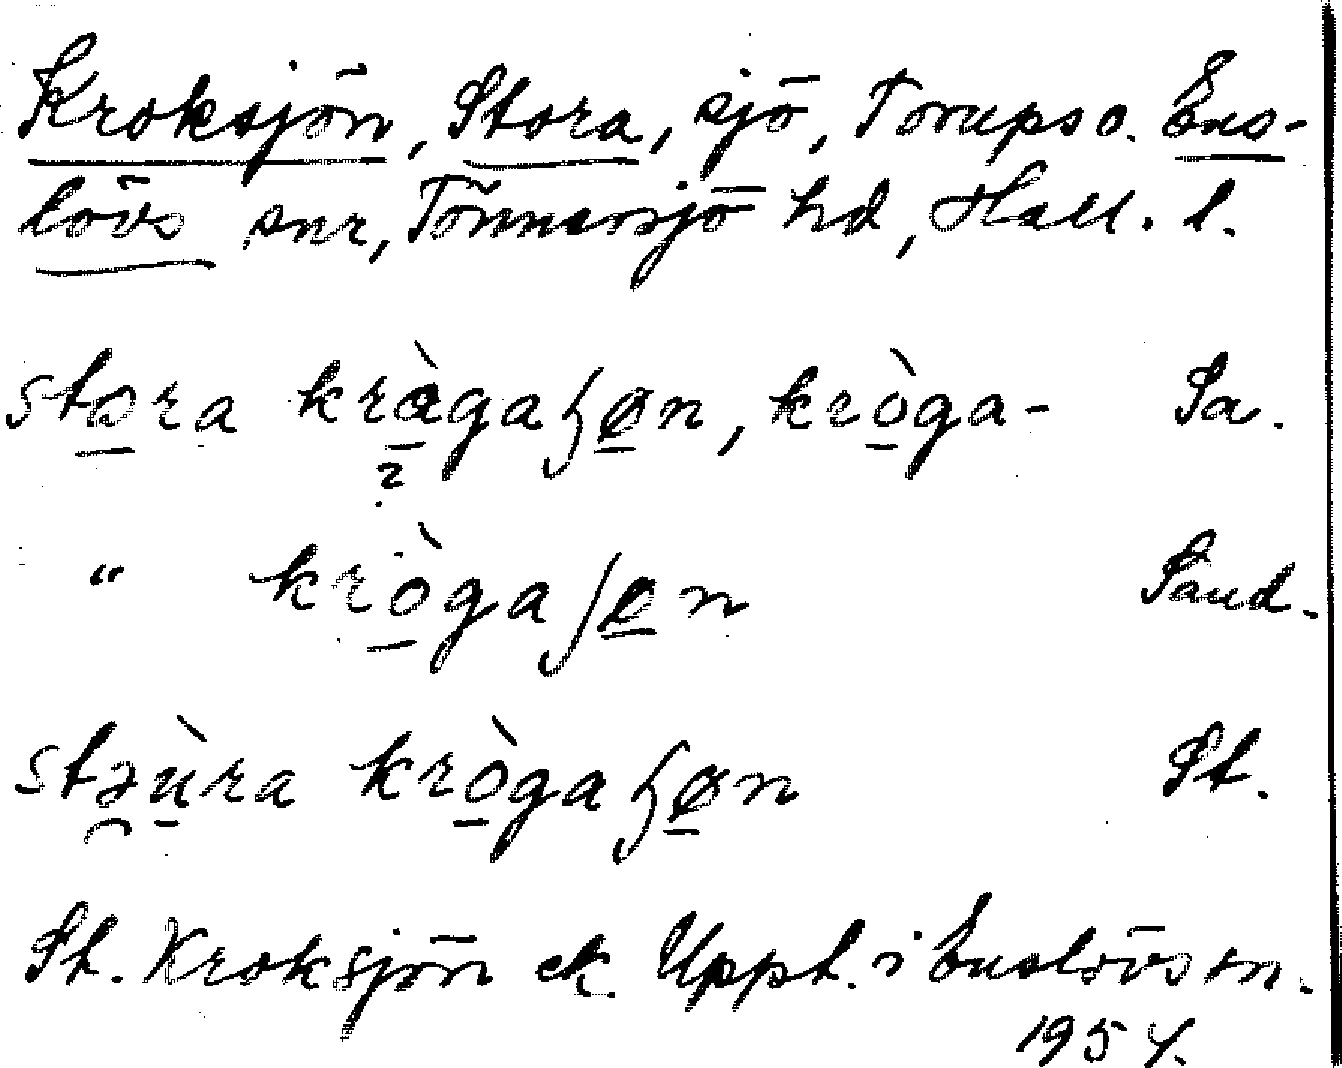 Kroksjön, Stora, sjö, Torups o. Ens-
lövs snr, Tönnersjö hd, Hall. l.
stora krògaɧøn, kròga- Sa.
?
" krògaʃøn Sand.
stəùra krògaɧøn St.
St. Kroksjön ek. Uppt. i Enslövs sn.
1954.